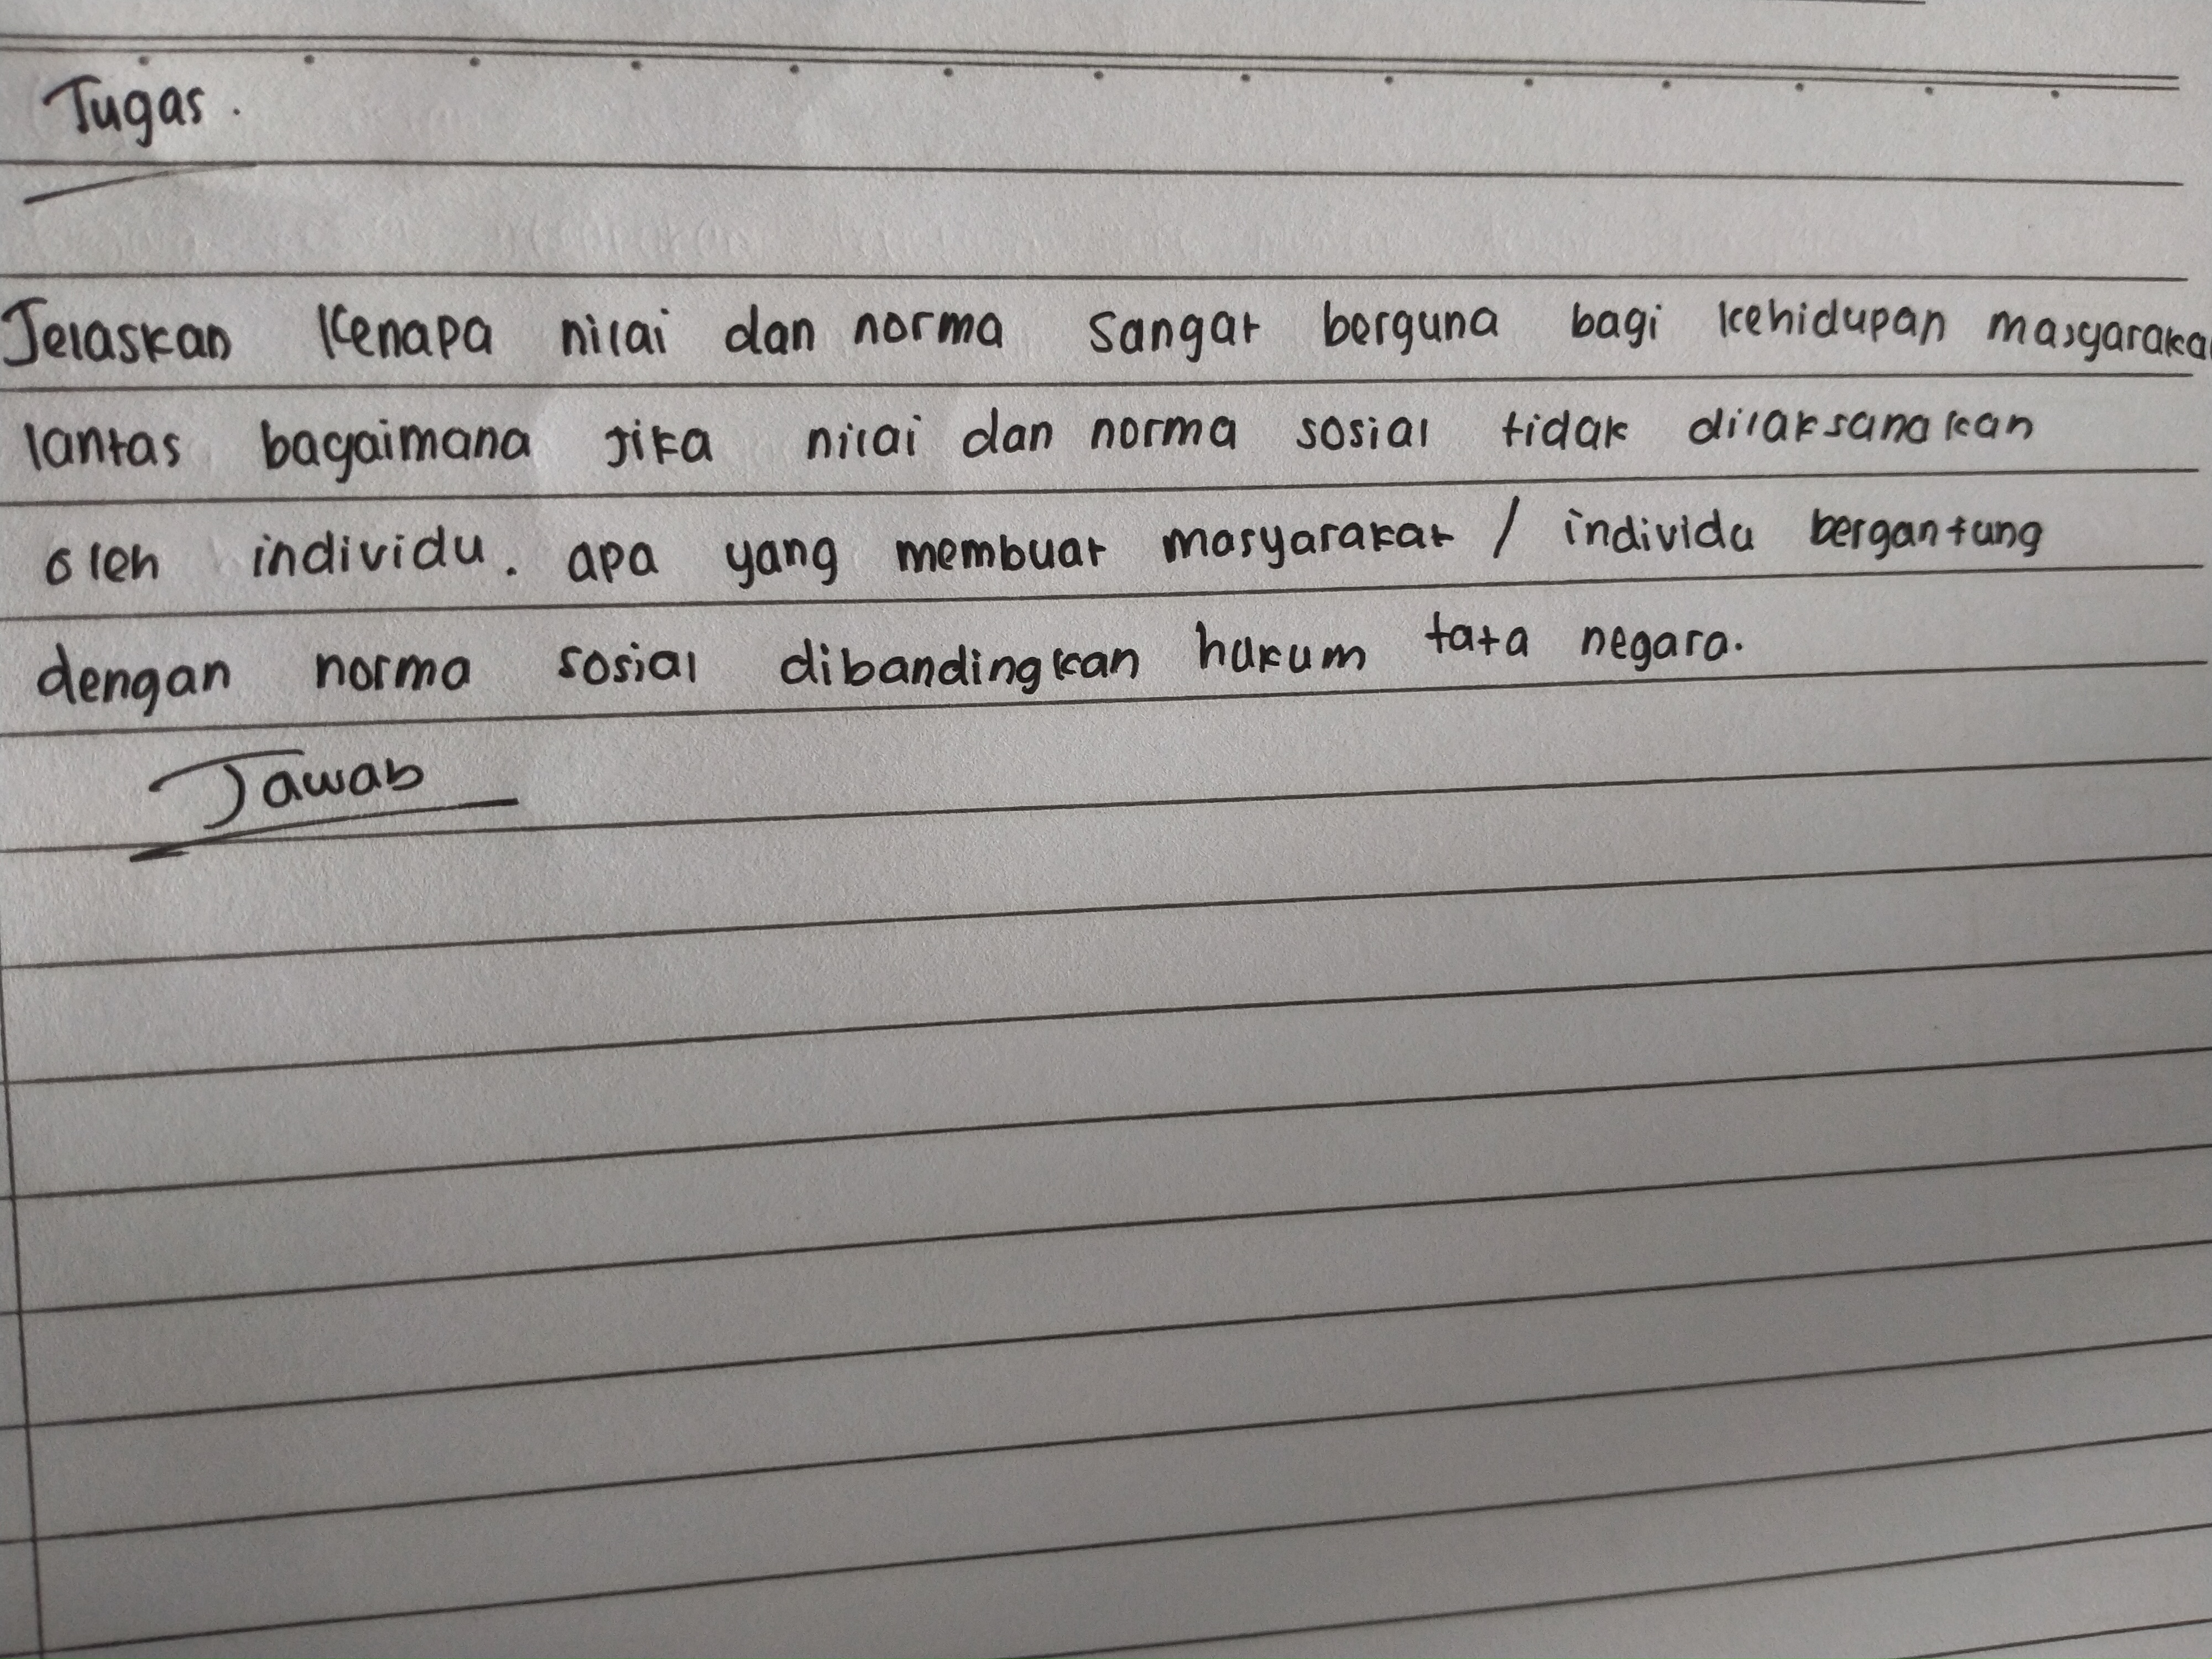 Tugas.
Jelaskan kenapa nilai dan norma sangat berguna bagi kehidupan masyaraka
lantas bagaimana jika nilai dan norma sosial tidak dilaksanakan
oleh individu. apa yang membuat masyarakat / individu bergantung
dengan norma sosial dibandingkan hukum tata negara.
Jawab